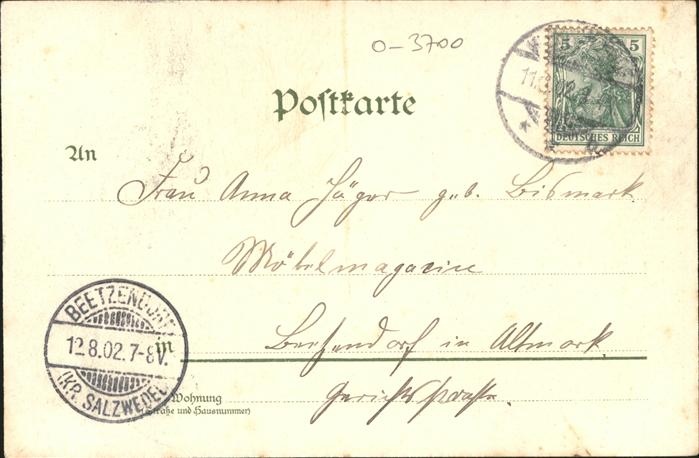 O-3700
5 5
11.8.02
DEUTSCHES REICH
Postkarte
An
Frau Anna Jäger geb. Bismark
Möbelmagazin
Beetzendorf in Altmark
Gerichtsstraße.
in
Wohnung
(Straße und Hausnummer)
BEETZENDORF
12.8.02.7-8V.
(KR. SALZWEDEL)